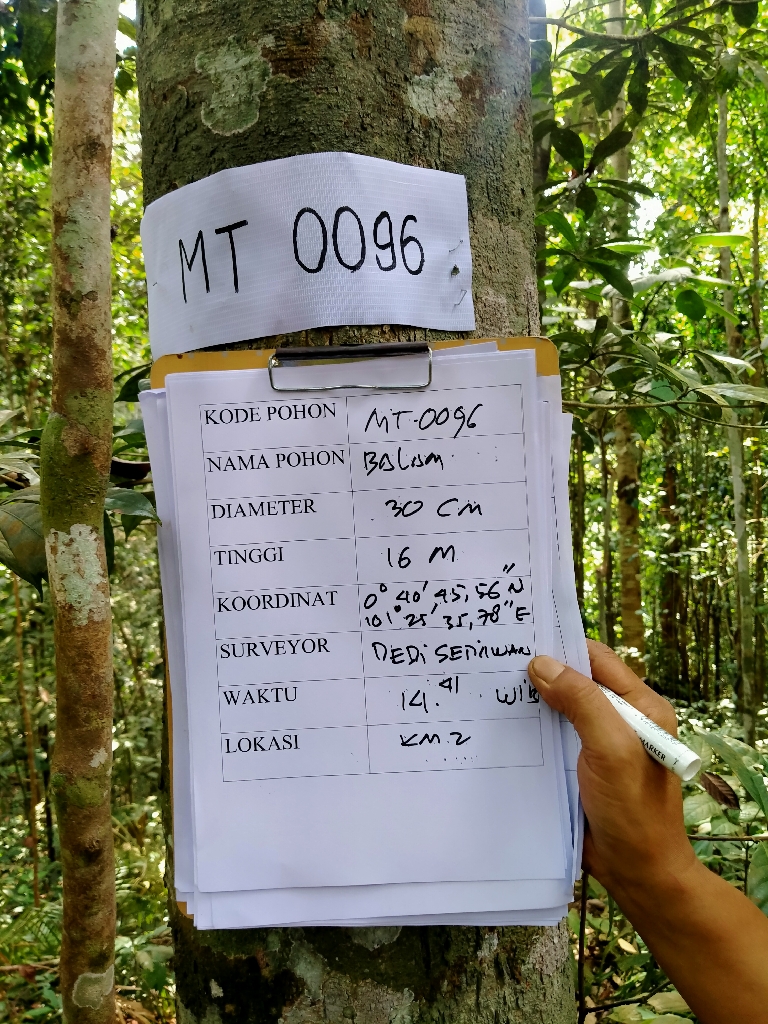 MT 0096
KODE POHON MT-0096
NAMA POHON BALAM
DIAMETER 30 Cm
TINGGI 16 M
KOORDINAT 0° 40' 45,56" N
101° 25' 35,78" E
SURVEYOR DEDI SETIAWAN
WAKTU 14.41 WIB
LOKASI KM.2
MARKER